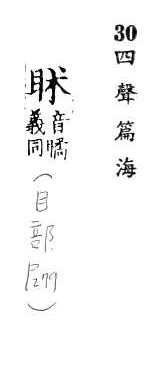 30四聲篇海
䀢
音瞲
義同
(目部.